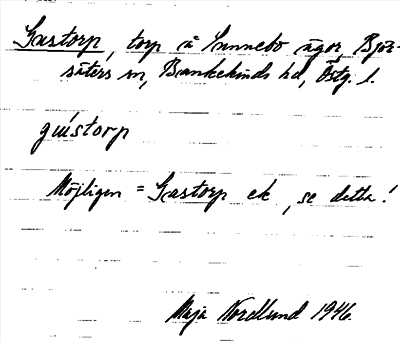 Gastorp, torp å Sunnebo ägor, Björ-
säters sn, Bankekinds hd, Östg. l.
gústorp
Möjligen = Gastorp ek, se detta!
Maja Nordlund 1946.